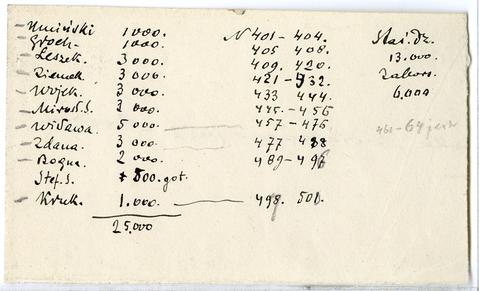 Umiński 1000. N 401 – 404. Stas. Dz.
Groch – 1000. 405 408. 13.000.
Leszek. 3000. 409. 420.
Ziemek. 3000. 421 – 432. 6.000
Wojtk. 3000. 433 444.
Mirosł. S. 3000. 445. – 456
Widawa. 5000 457 – 476
Zdana. 3000. 477 488
Bogna. 2000. 489 – 496
Stef. S. 500. got.
Kruk. 1.000. 498. 501.
25.000